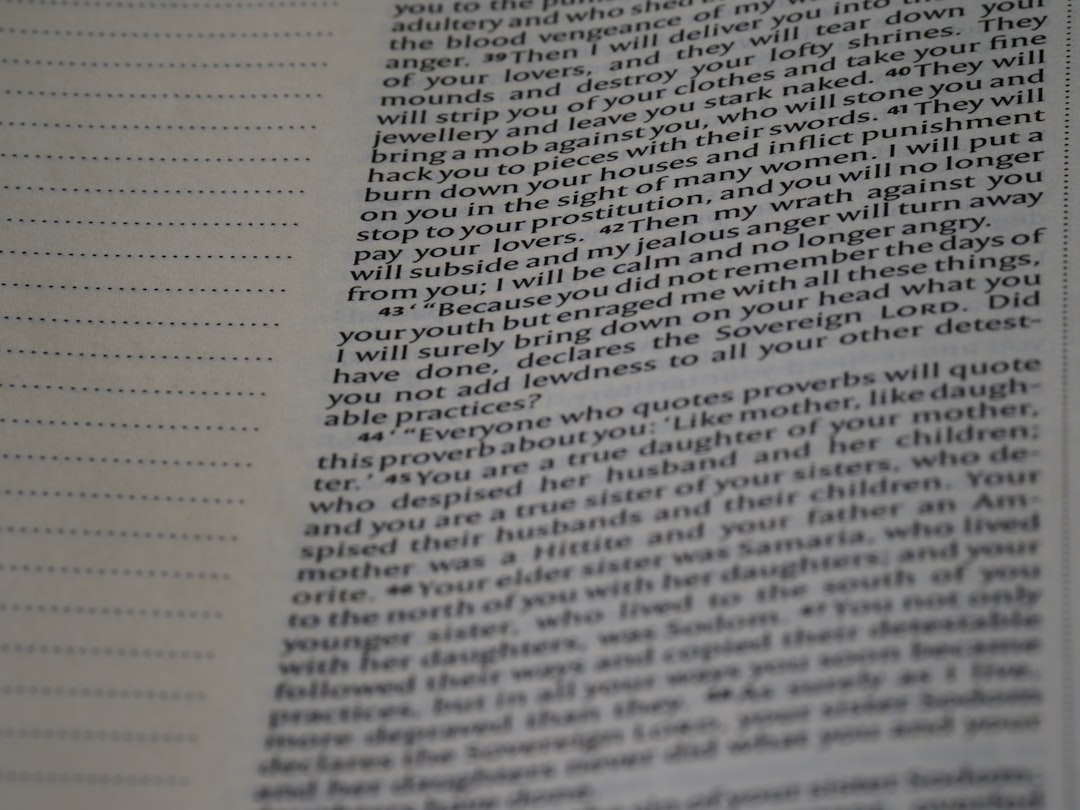 you to the
adultery and who shed
the blood vengeance of my
anger. 39 Then I will deliver you into
of your lovers, and they will tear down your
mounds and destroy your lofty shrines. They
will strip you of your clothes and take your fine
jewellery and leave you stark naked. 40 They will
bring a mob against you, who will stone you and
hack you to pieces with their swords. 41 They will
burn down your houses and inflict punishment
on you in the sight of many women. I will put a
stop to your prostitution, and you will no longer
pay your lovers. 42 Then my wrath against you
will subside and my jealous anger will turn away
from you; I will be calm and no longer angry.
43 ‘ “Because you did not remember the days of
your youth but enraged me with all these things,
I will surely bring down on your head what you
have done, declares the Sovereign LORD. Did
you not add lewdness to all your other detest-
able practices?
44 ‘ “Everyone who quotes proverbs will quote
this proverb about you: ‘Like mother, like daugh-
ter.’ 45 You are a true daughter of your mother,
who despised her husband and her children;
and you are a true sister of your sisters, who de-
spised their husbands and their children. Your
mother was a Hittite and your father an Am-
orite. 46 Your elder sister was Samaria, who lived
to the north of you with her daughters; and your
younger sister, who lived to the south of you
with her daughters, was Sodom. 47 You not only
followed their ways and copied their detestable
practices, but in all your ways you soon became
more depraved than they. 48 As surely as I live,
declares the Sovereign LORD, your sister Sodom
and her daughters never did what you and your
have done.